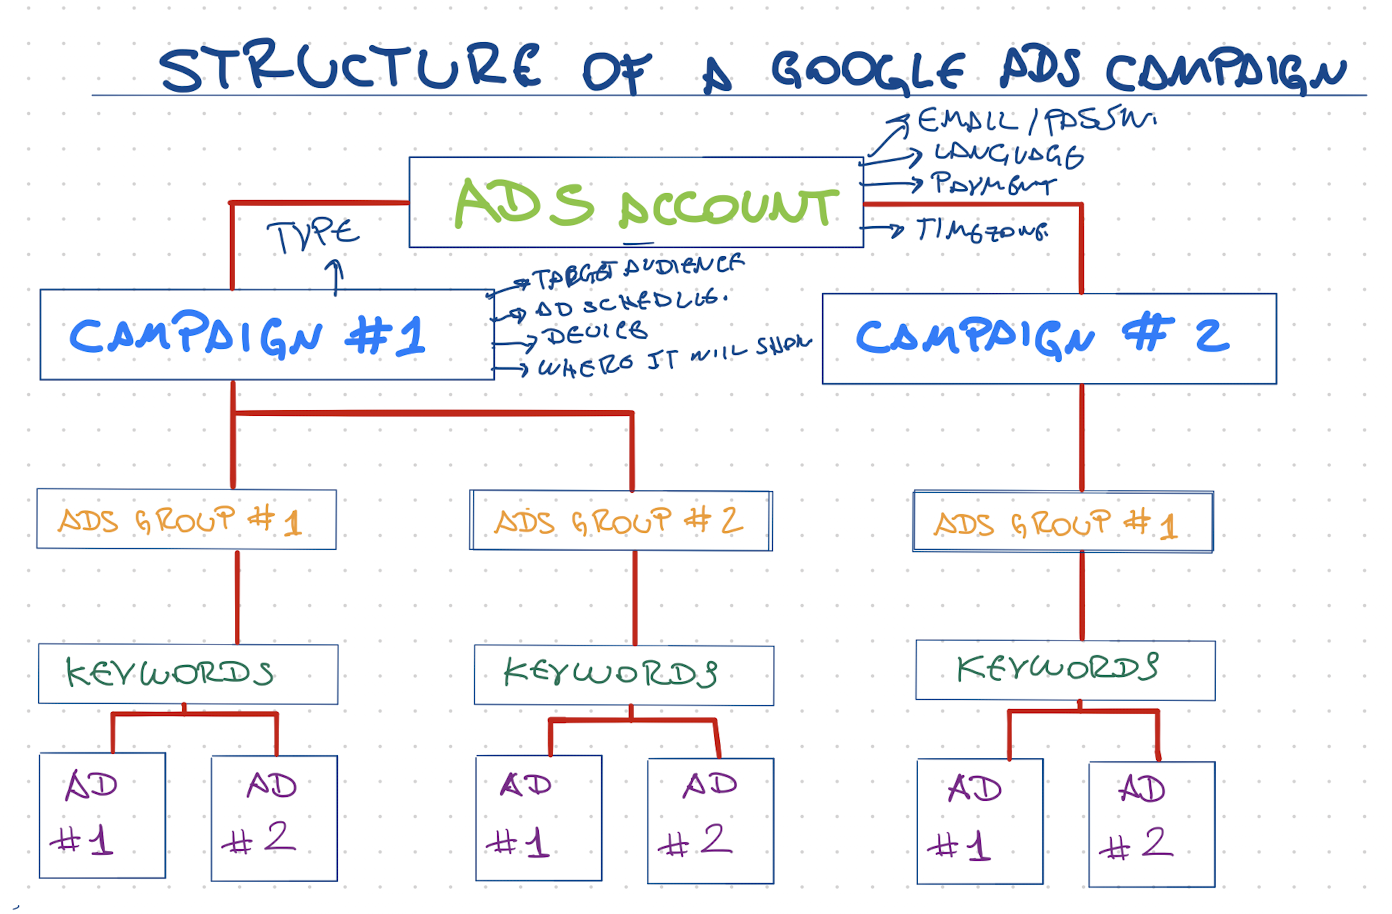 STRUCTURE OF A GOOGLE ADS CAMPAIGN
EMAIL / PASSW.
LANGUAGE
PAYMENT
TIMEZONE.
ADS ACCOUNT
TYPE
TARGET AUDIENCE
AD SCHEDULE.
DEVICE
WHERE IT WILL SHOW
CAMPAIGN #1
CAMPAIGN # 2
ADS GROUP #1
ADS GROUP # 2
ADS GROUP #1
KEYWORDS
KEYWORDS
KEYWORDS
AD
#1
AD
#2
AD
#1
AD
#2
AD
#1
AD
#2